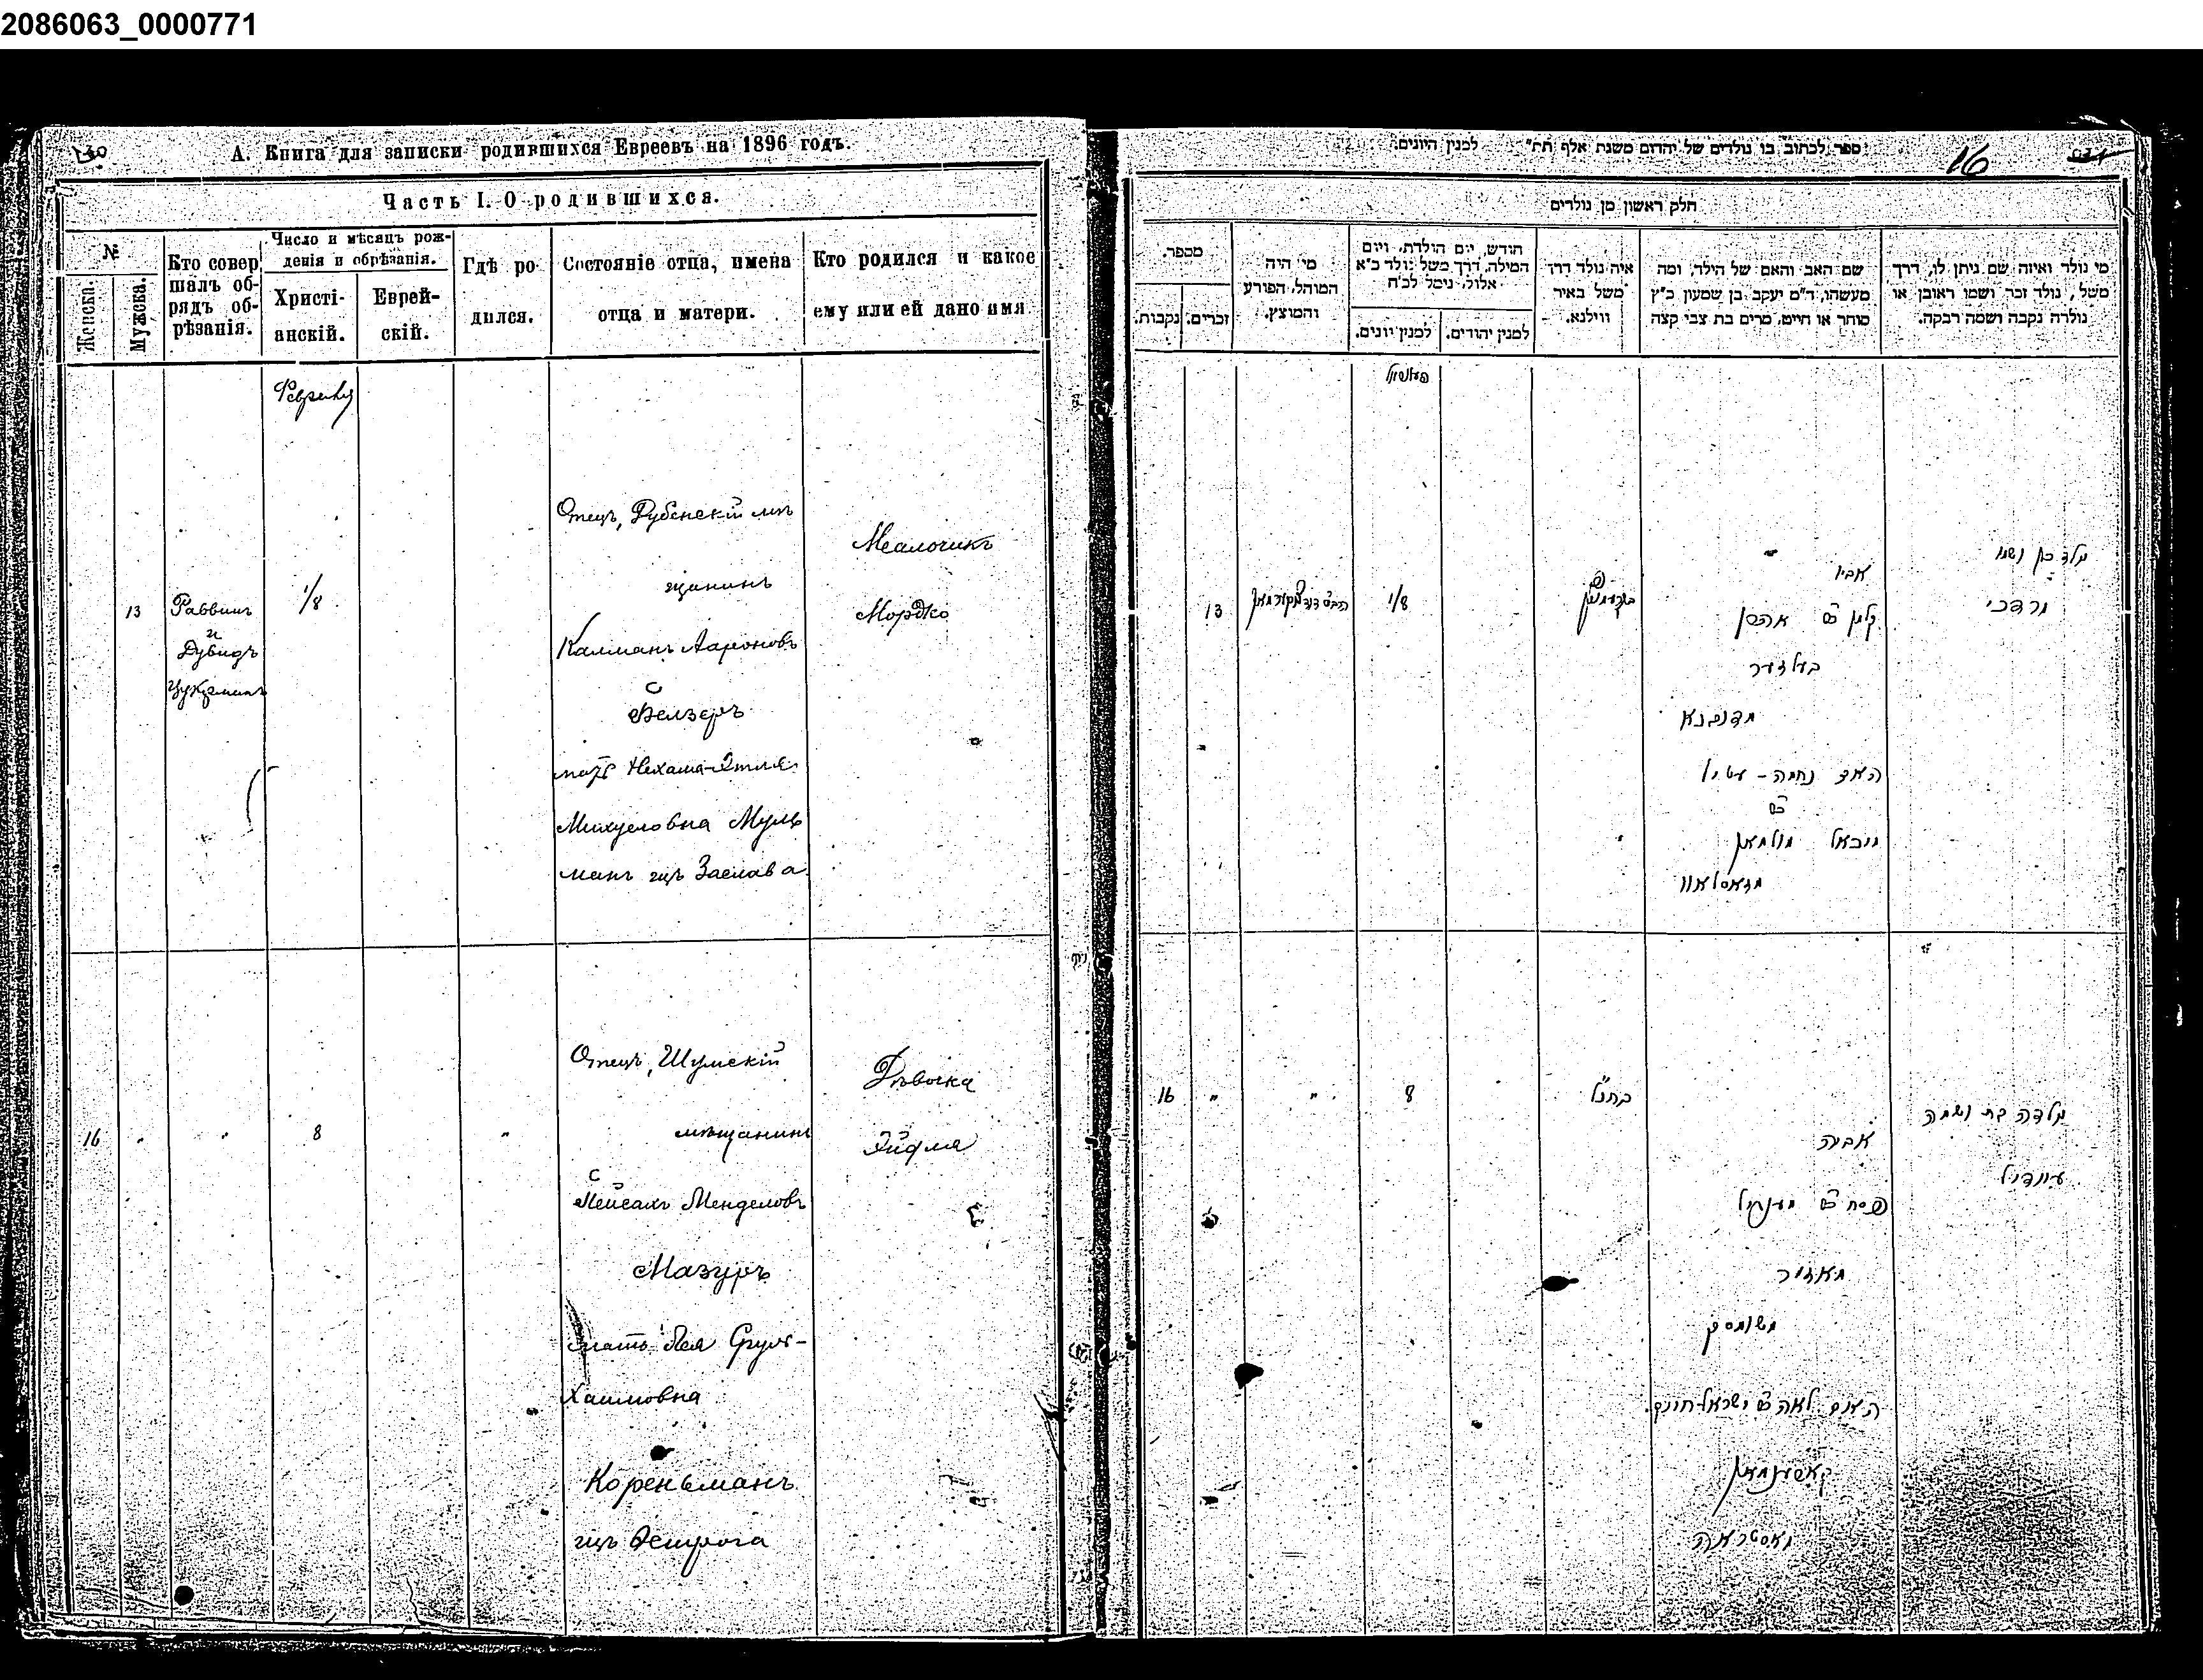 2086063_0000771
А. Книга для записки родившихся Евреевъ на 1896 годъ.
Часть I. О родившихся.
№
Женска.
Мужеска.
Кто совер
шалъ об-
рядъ об-
рѣзанія.
Число и мѣсяцъ рож-
денія и обрѣзанія.
Христі-
анскій.
Еврей-
скій.
Гдѣ ро-
дился.
Состояніе отца, имена
отца и матери.
Кто родился и какое
ему или ей дано имя
13
Раввинъ
и
Дувидъ
Цукерманъ
1/8
Отецъ, Дубенскій мѣ
щанинъ
Калманъ Аароновъ
Белзеръ
мать Нехама-Этля
Михуеловна Муль
манъ изъ Заслава
Мальчикъ
Мордко
16
"
"
8
"
Отецъ, Шумскій
мѣщанинъ
Пейсахъ Менделовъ
Мазуръ
мать Лея Сруль-
Хаимовна
Кореньманъ
изъ Острога
Дѣвочка
Эйдля
ספר לכתוב בו נולדים של יהודים משנת אלף תת" למנין היונים.
16
חלק ראשון מן נולדים
מי נולד ואיזה שם ניתן לו, דרך
משל, נולד זכר ושמו ראובן או
נולדה נקבה ושמה רבקה.
שם האב והאם של הילד, ומה
מעשהו, ד"מ יעקב בן שמעון כ"ץ
סוחר או חייט, מרים בת צבי קצה
איה נולד דרך
משל באיר
ווילנא.
חודש, יום הולדת, ויום
המילה, דרך משל נולד כ"א
אלול, נימל לכ"ח
למנין יהודים.
למנין יונים.
מי היה
המוהל, הפורע
והמוצץ.
מספר.
זכרים.
נקבות.
נולד בן ושמו
מרדכי
אביו
קלמן ב"ר אהרן
בעלזער
מדובנא
האם נחמה - עטיל
ב"ר
מיכאל מולמאן
מזאסלאוו
1/8
13
נולדה בת ושמה
איידיל
אביה
פסח ב"ר מענדיל
מאזור
משומסק
האם לאה ב"ר ישראל-חיים
קארענמאן
מאסטראה
כהנ"ל
8
"
"
16